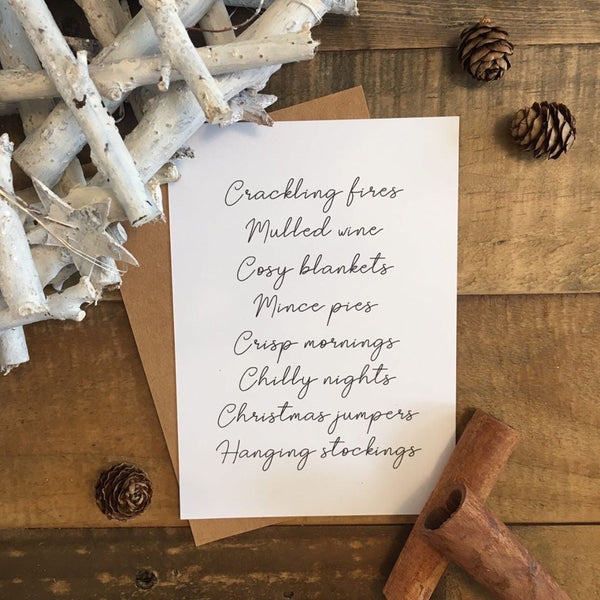 Crackling fires
Mulled wine
Cosy blankets
Mince pies
Crisp mornings
Chilly nights
Christmas jumpers
Hanging stockings